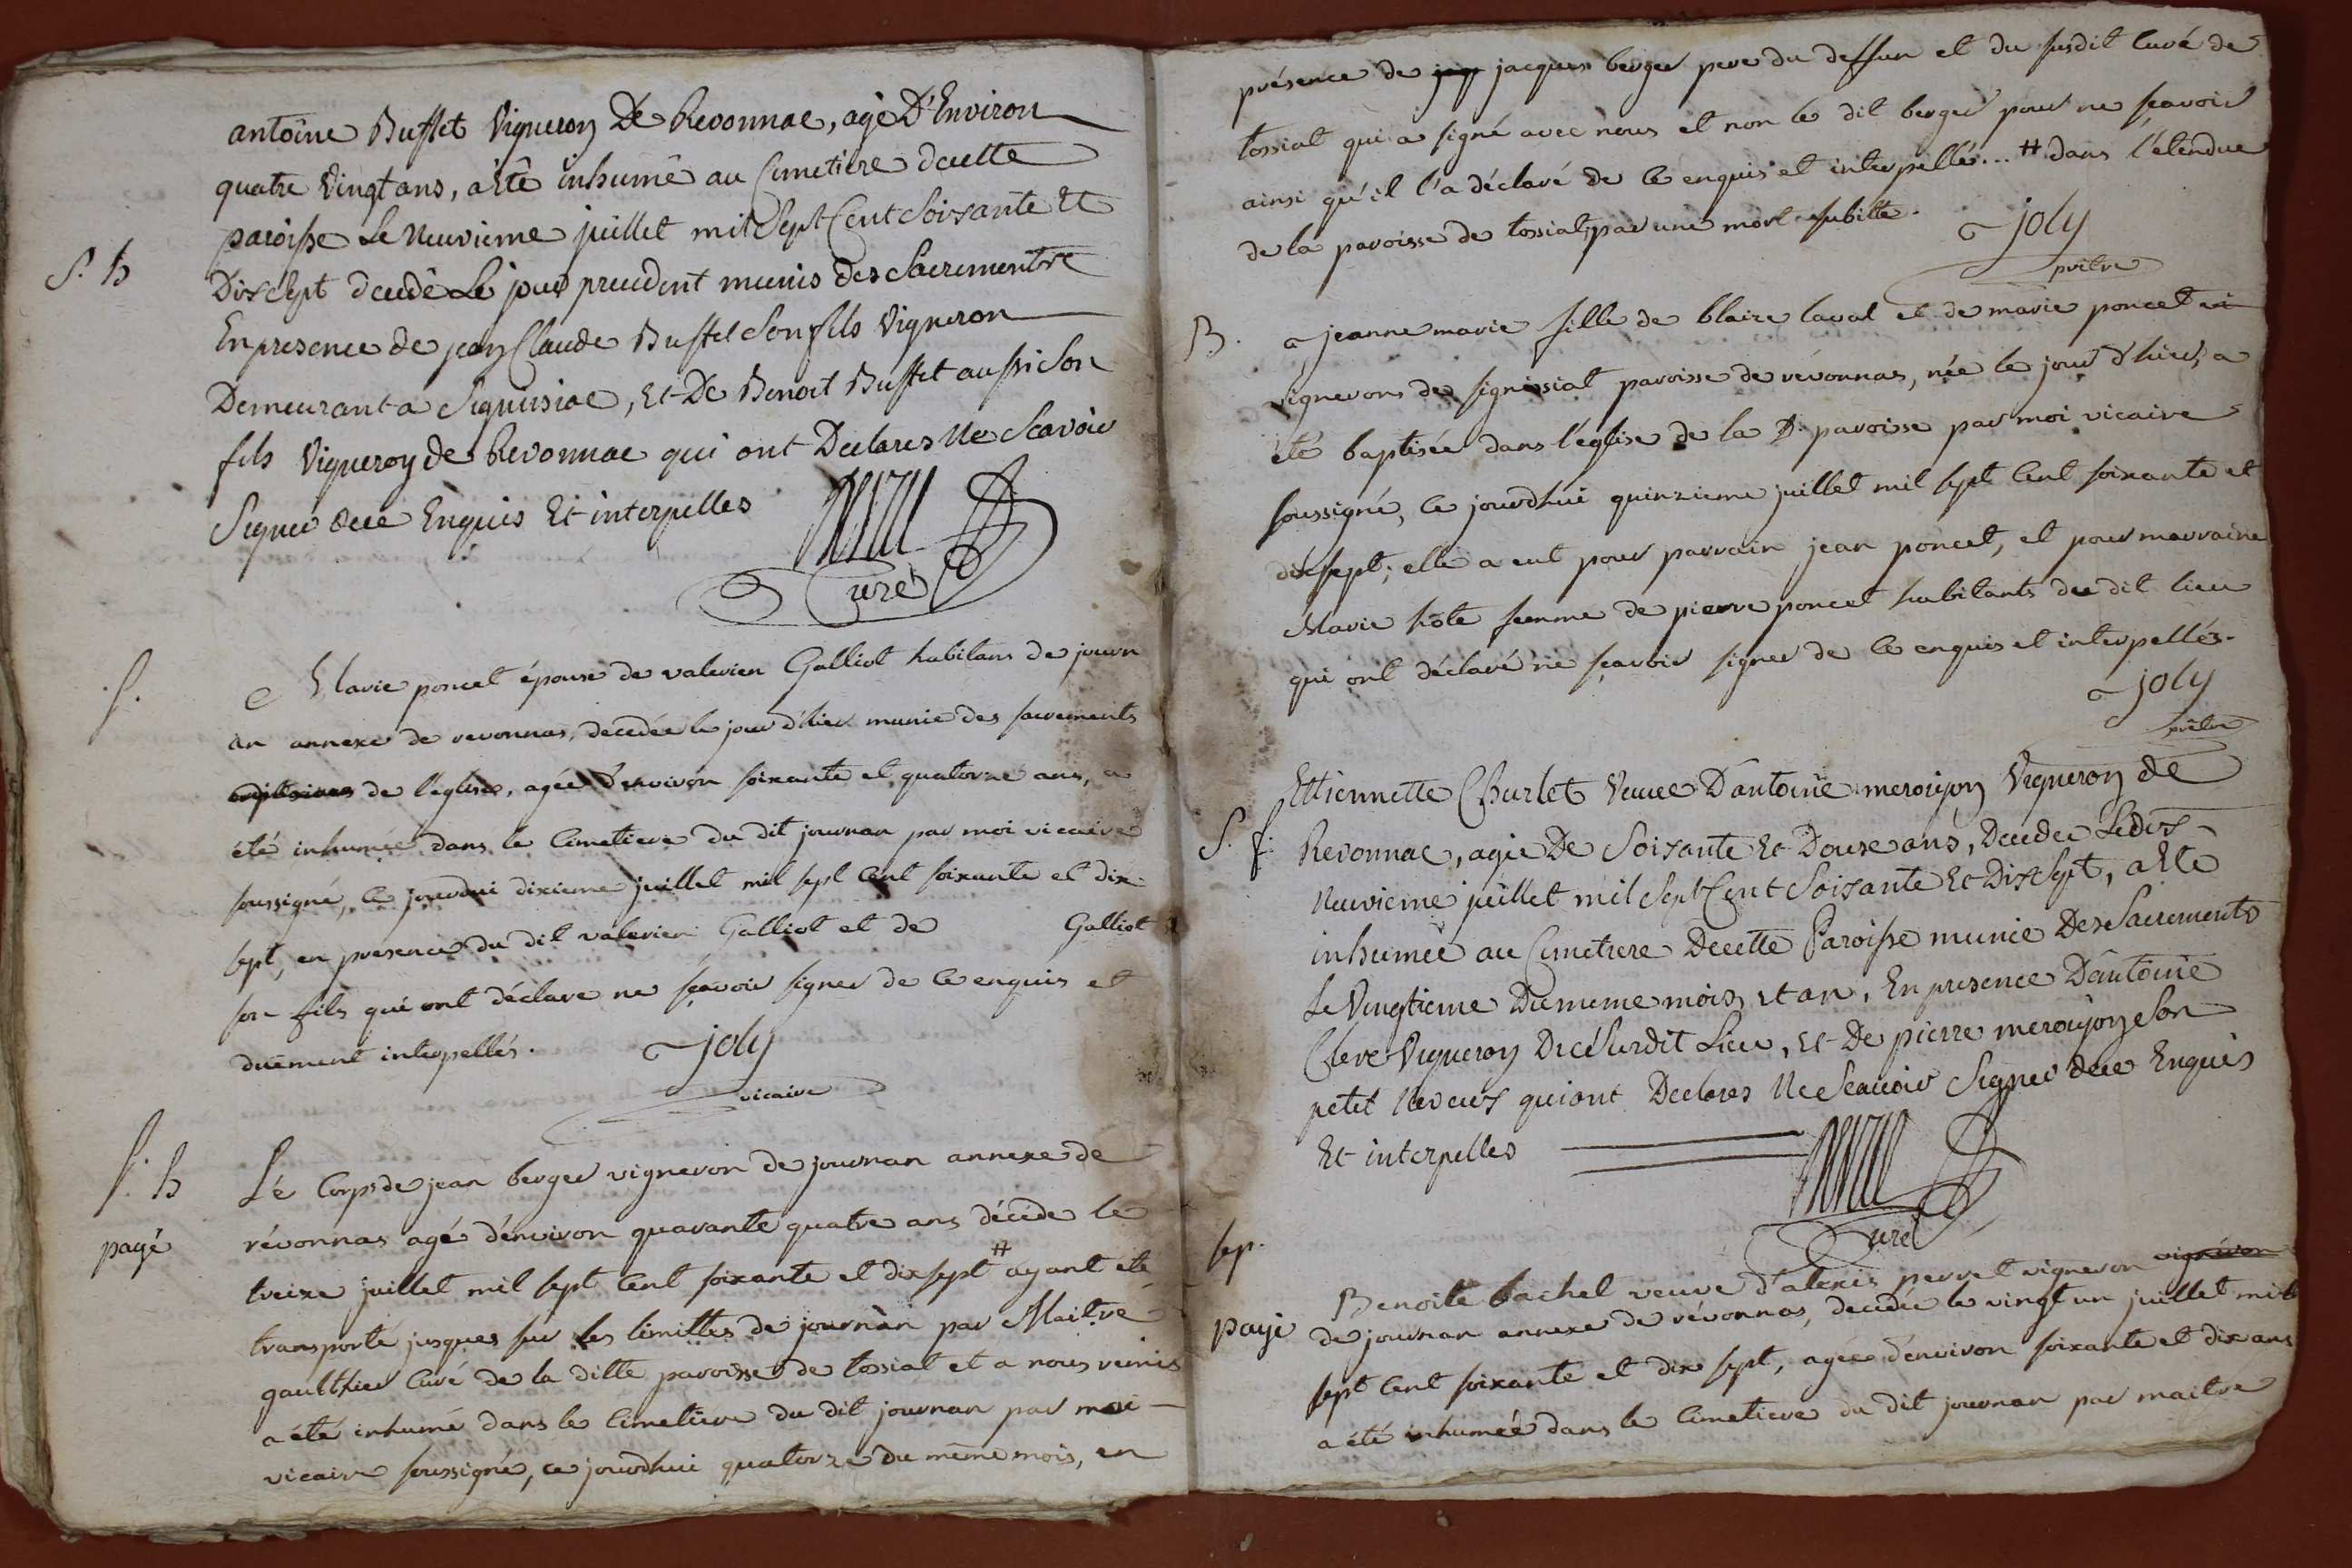 antoine Buffet Vigneron De Revonnac, agé D'Environ
quatre Vingt ans, a Eté inhumé au Cimetiere decette
paroisse Le Neuvieme juillet mil Sept Cent Soisante Et
S. h
Dix Sept decedé Le jour precedent munis des Sacrements
En presence de jean Claude Buffet Son fils Vigneron
Demeurant a Signissiac, Et De Benoit Buffet aussi Son
fils Vigneron de Revonnac qui ont Declarés Ne Scavoir
Signer dece Enquis Et interpelles
Curé
f.
Marie poncet épouse de valerien Galliot habitans de journ
an annexe de revonnas, decedée le jour d'hier munie des sacrements
de l'eglise, agée d'environ soixante et quatorze ans, a
été inhumée dans le Cimetiere du dit journan par moi vicaire
soussigné, ce jourdui dixieme juillet mil sept Cent soixante et dix-
sept, en presence du dit valerien Galliot et de Galliot
son fils qui ont déclaré ne sçavoir signer de ce enquis et
duement interpellés.
joly
vicaire
S. h
payé
Le Corps de jean berger vigneron de journan annexe de
révonnas agé d'environ quarante quatre ans décédé le
treize juillet mil sept Cent soixante et dix sept # ayant été
transporté jusques sur les limittes de journan par Maitre
gaulthier Curé de la ditte paroisse de tossiat et a nous remis
a été inhumé dans le Cimetiere du dit journan par moi
vicaire soussigné, ce jourdhui quatorze du même mois, en
présence de jacques berger pere du deffun et du susdit Curé de
tossiat qui a signé avec nous et non le dit berger pour ne sçavoir
ainsi qu'il l'a déclaré de ce enquis et interpellé... # dans l'étendue
de la paroisse de tossiat, par une mort subitte.
joly
prêtre
B.
jeanne marie fille de blaize laval et de marie poncet
vignerons de signissiat paroisse de révonnas, née le jour d'hier, a
été baptisée dans l'église de la D. paroisse par moi vicaire
soussigné, ce jourdhui quinzieme juillet mil sept Cent soixante et
dix sept; elle a eut pour parrain jean poncet, et pour marraine
Marie hôte femme de pierre poncet habitants du dit lieu
qui ont déclaré ne sçavoir signer de ce enquis et interpellés.
joly
prêtre
Ettiennette Churlet Veuve D'antoine meroujon Vigneron de
S. f.
Revonnac, agée De Soisante Et Douse ans, Decedee Le dix
Neuvieme juillet mil Sept Cent Soisante Et Dix Sept, a Eté
inhumée au Cimetiere Decette Paroisse munie Des Sacrements
Le Vingtieme Du meme mois, et an, En presence D'antoine
Clere Vigneron Dicélurdit Lieu, Et De pierre meroujon Son
petit Neveux qui ont Declarés Ne Scavoir Signer dece Enquis
Et interpelles
Curé
sep.
payé
Benoite bachel veuve d'alexis perret vigneron vigneron
de journan annexe de révonnas, decedée le vingt un juillet mil
sept Cent soixante et dix sept, agée d'environ soixante et dix ans
a été inhumée dans le Cimetiere du dit journan par maitre